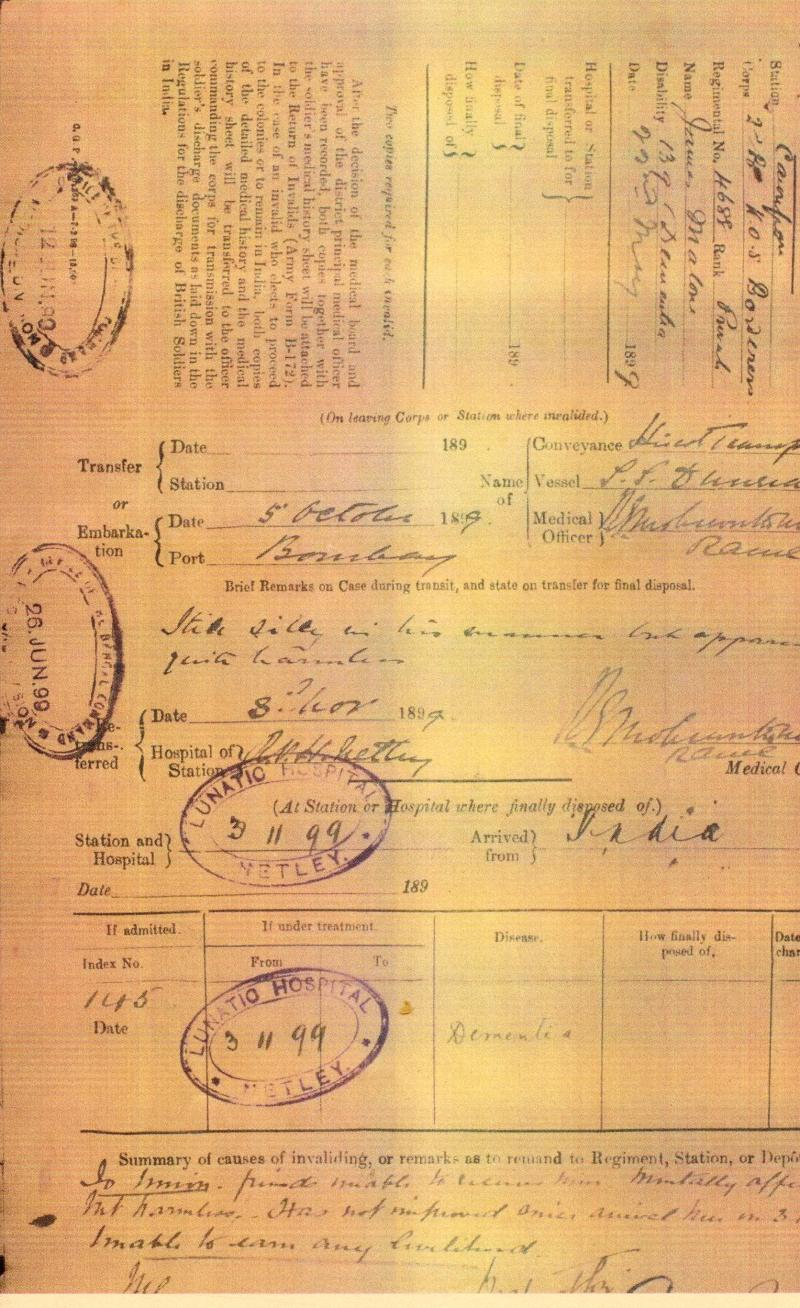 Station Cawnpore
Corps 2nd Bn K.O.S Borderers
Regimental No. 4688 Rank Private
Name James Malone
Disability 139 (Dementia
Date 22nd May 1899
Hospital or Station
transferred to for
final disposal
Date of final
disposal 189 .
How finally
disposed of
Two copies required for each invalid.
After the decision of the medical board and
approval of the district principal medical officer
have been recorded, both copies together with
the soldier's medical history sheet will be attached
to the Return of Invalids (Army Form B-172).
In the case of an invalid who elects to proceed
to the colonies or to remain in India, both copies
of the detailed medical history and the medical
history sheet will be transferred to the officer
commanding the corps for transmission with the
soldier's discharge documents as laid down in the
Regulations for the discharge of British Soldiers
in India.
(On leaving Corps or Station where invalided.)
Transfer Date 189 .
Station
or
Embarkation Date 5 October 1899.
Port Bombay
Name of Conveyance Hired Transp
Vessel S.S. Dunera
Medical Officer
RAMC
Brief Remarks on Case during transit, and state on transfer for final disposal.
Still silly in his manner but appare
quite harmless
Date 3rd Nov 1899
Hospital of
Station R.V.H. Netley
RAMC
Medical O
26.JUN.99
(At Station or Hospital where finally disposed of.)
LUNATIC HOSPITAL
3 11 99
NETLEY.
Station and
Hospital
Arrived
from India
Date 189
If admitted. If under treatment. Disease. How finally disposed of, Date
char
Index No. From To
145
Date
LUNATIC HOSPITAL
3 11 99
NETLEY.
Dementia
Summary of causes of invaliding, or remarks as to remand to Regiment, Station, or Depô
To Union. friends unable to receive him. Mentally affe
but harmless. Has not improved since arrival here on 3
Unable to earn any livelihood.